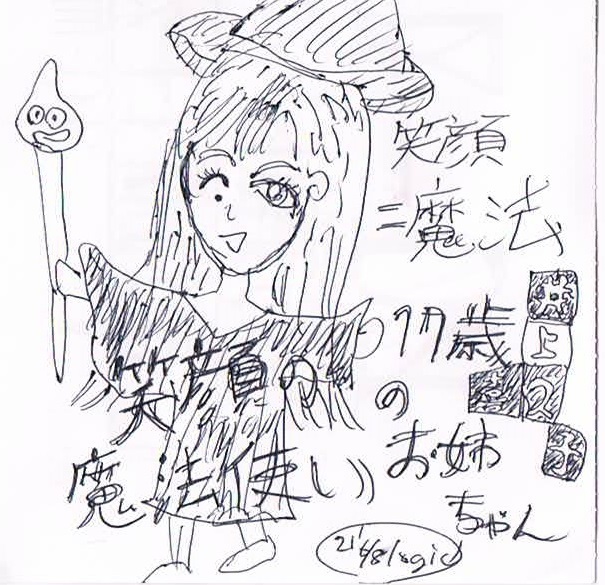 笑顔
=魔法
17歳
の
お姉
ちゃん
井
上
笑顔の
魔法使い